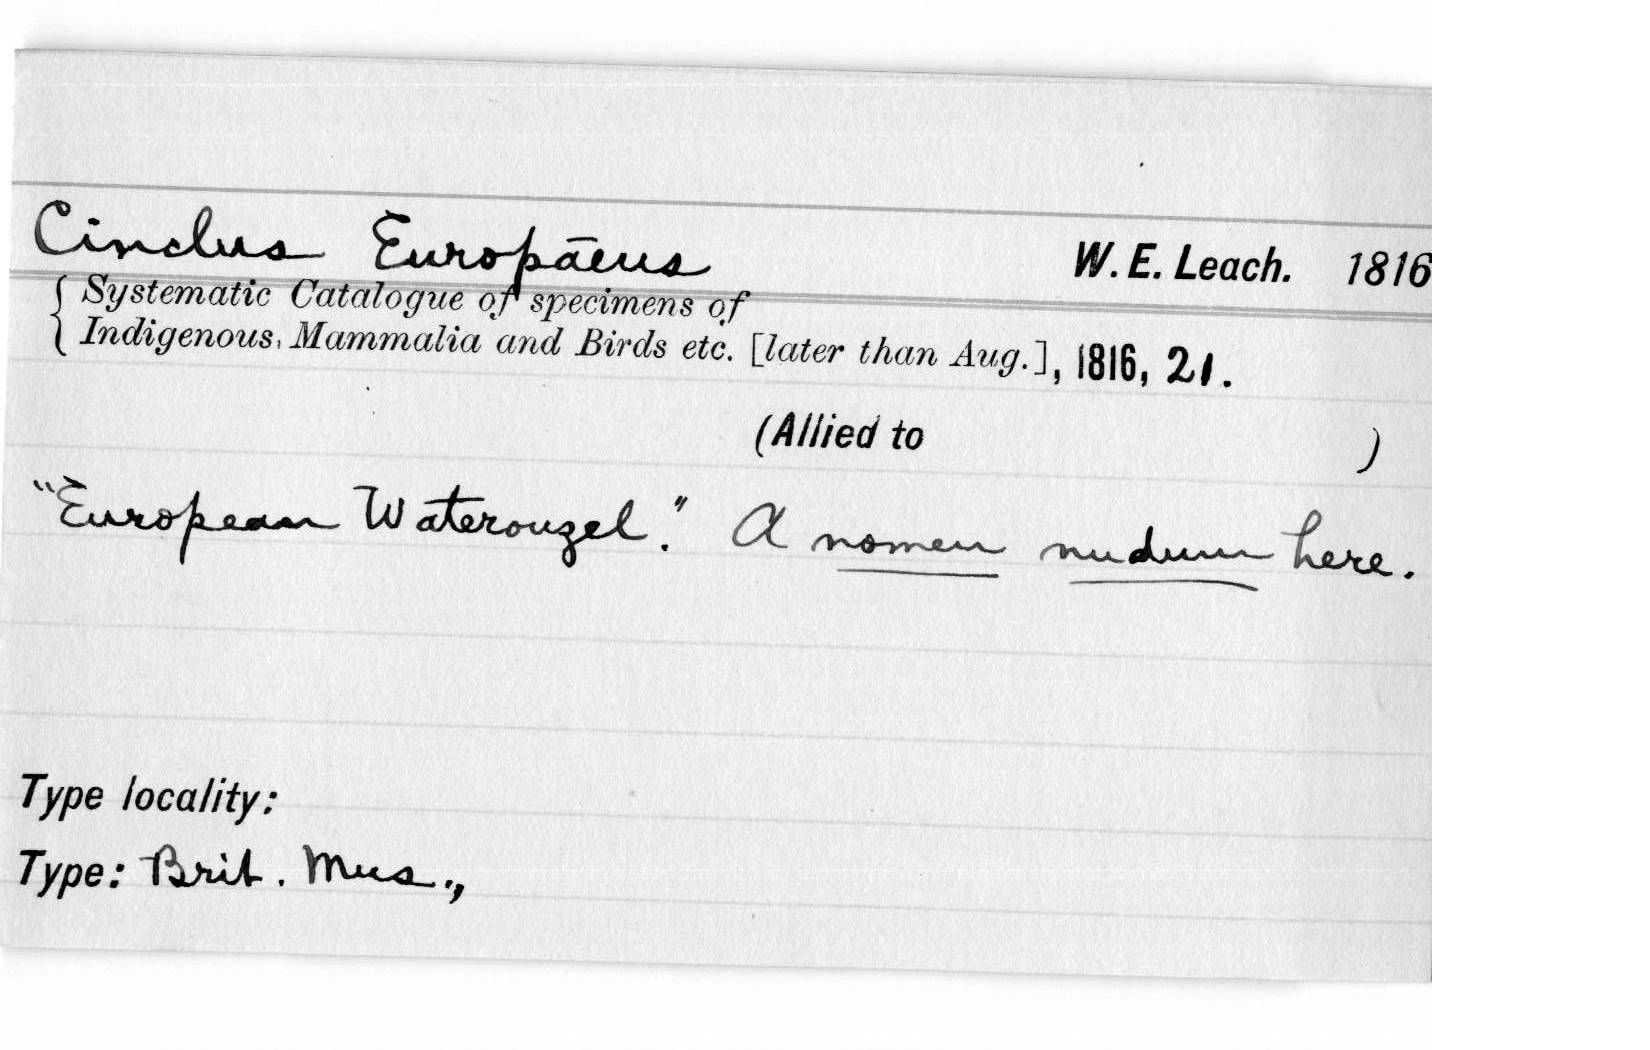 Cinclus Europāeus W. E. Leach. 1816
{ Systematic Catalogue of specimens of
Indigenous, Mammalia and Birds etc. [later than Aug.], 1816, 21.
(Allied to )
"European Waterouzel." A nomen nudum here.
Type locality:
Type: Brit. Mus.,